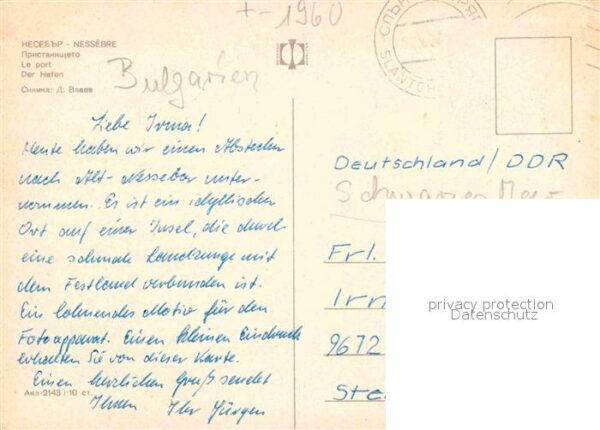 +-1960
НЕСЕБЪР - NESSÈBRE
Пристанището
Le port
Der Hafen
Снимка: Д. Влаев
Bulgarien
СЛЪН
SLANTCH
Liebe Irma!
Heute haben wir einen Abstecher
nach Alt-Nessebar unter-
nommen. Es ist ein idyllischer
Ort auf einer Insel, die durch
eine schmale Landzunge mit
dem Festland verbunden ist.
Ein lohnendes Motiv für den
Fotoapparat. Einen kleinen Eindruck
erhalten Sie von dieser Karte.
Einen herzlichen Gruß sendet
Ihnen Ihr Jürgen
Акл-2143 / 10 ст.
Deutschland / DDR
Schwarzes Meer
Frl.
Irm
9672
privacy protection
Datenschutz